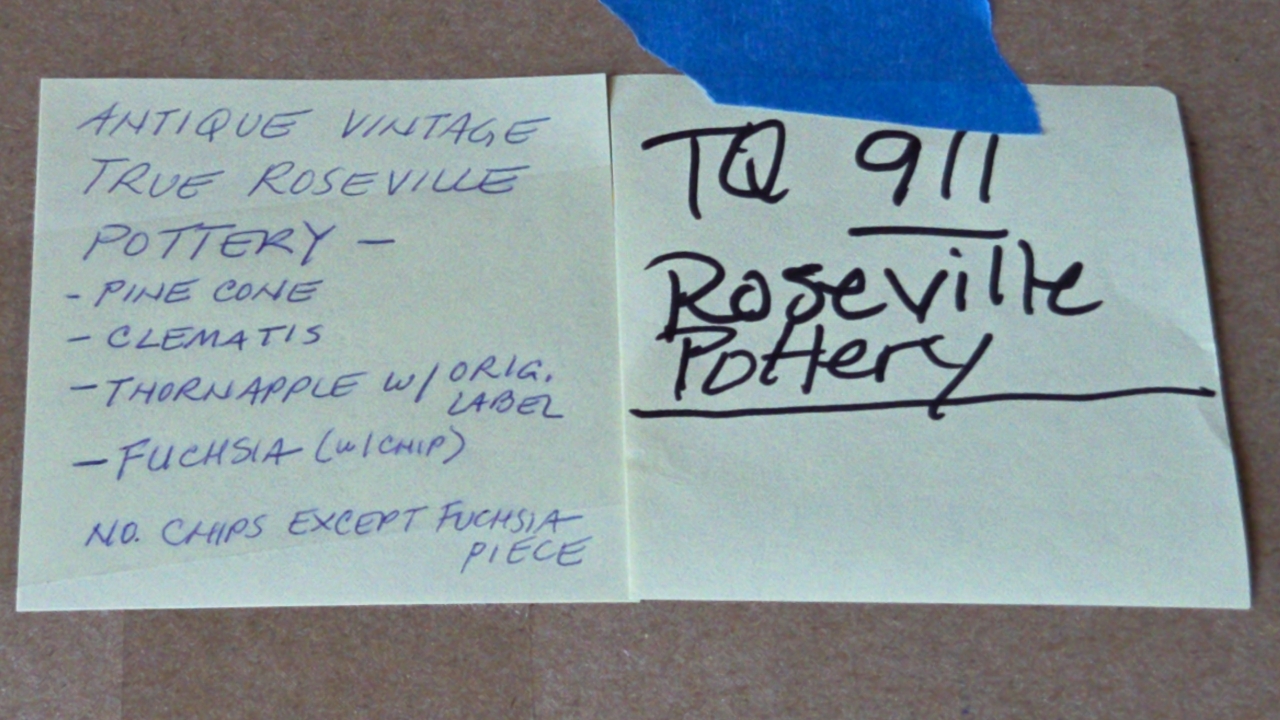 ANTIQUE VINTAGE
TRUE ROSEVILLE
POTTERY -
- PINE CONE
- CLEMATIS
- THORNAPPLE W/ ORIG.
LABEL
- FUCHSIA (W/CHIP)
NO. CHIPS EXCEPT FUCHSIA
PIECE
TQ 911
Roseville
Pottery